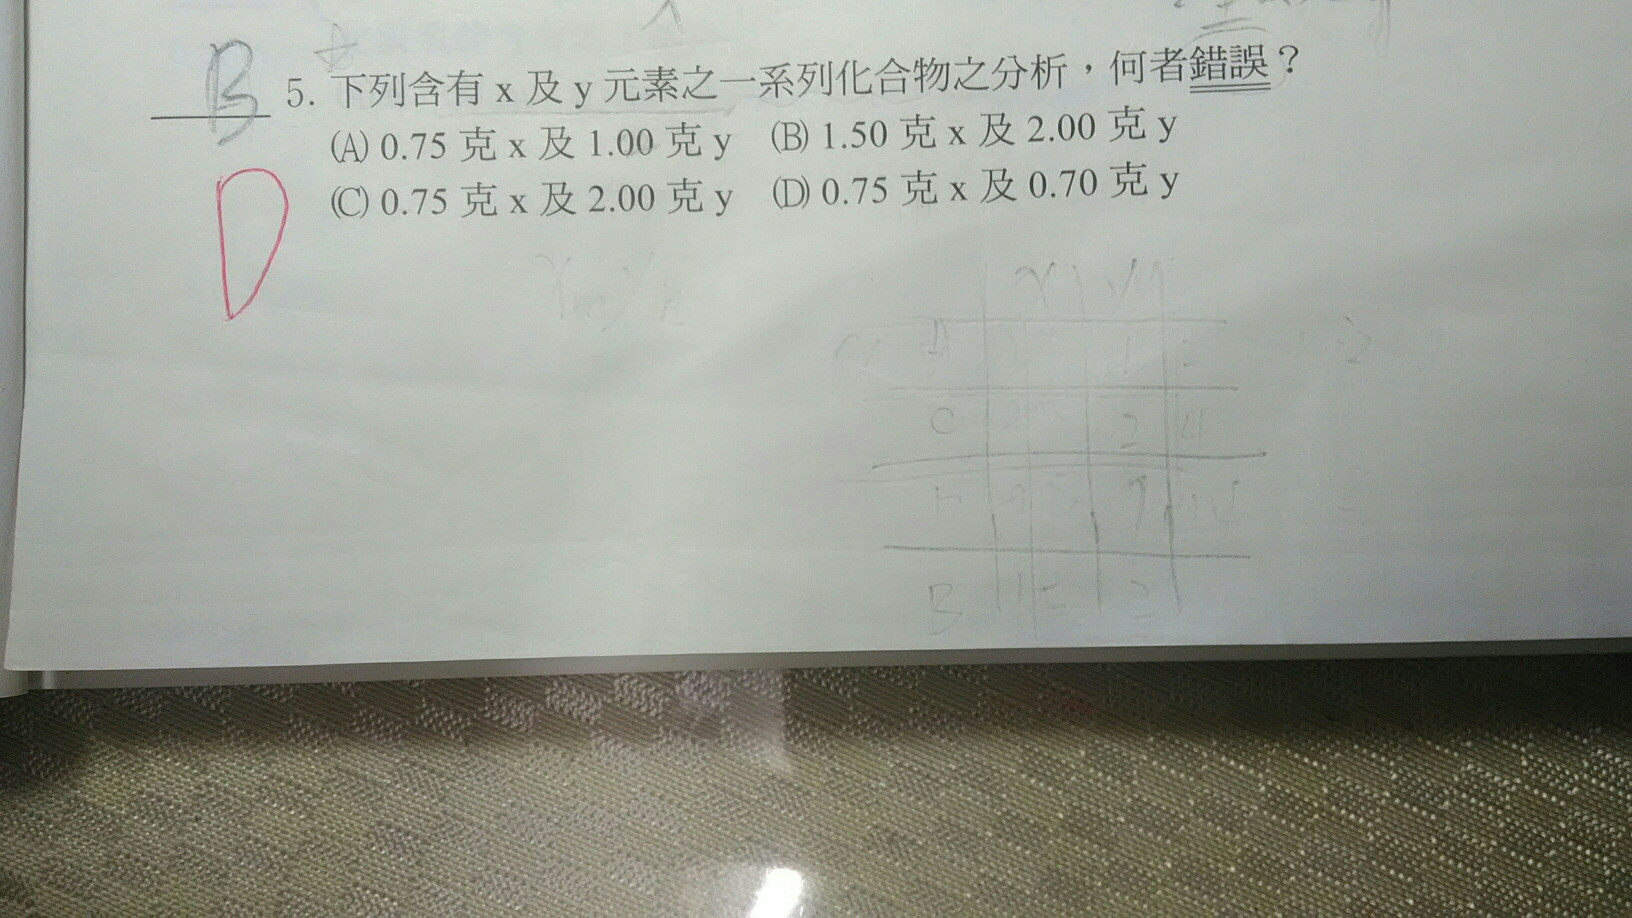 B 5. 下列含有 x 及 y 元素之一系列化合物之分析，何者錯誤？
(A) 0.75 克 x 及 1.00 克 y (B) 1.50 克 x 及 2.00 克 y
(C) 0.75 克 x 及 2.00 克 y (D) 0.75 克 x 及 0.70 克 y
D
x y
A 1
C 2 4
B 1.5 2